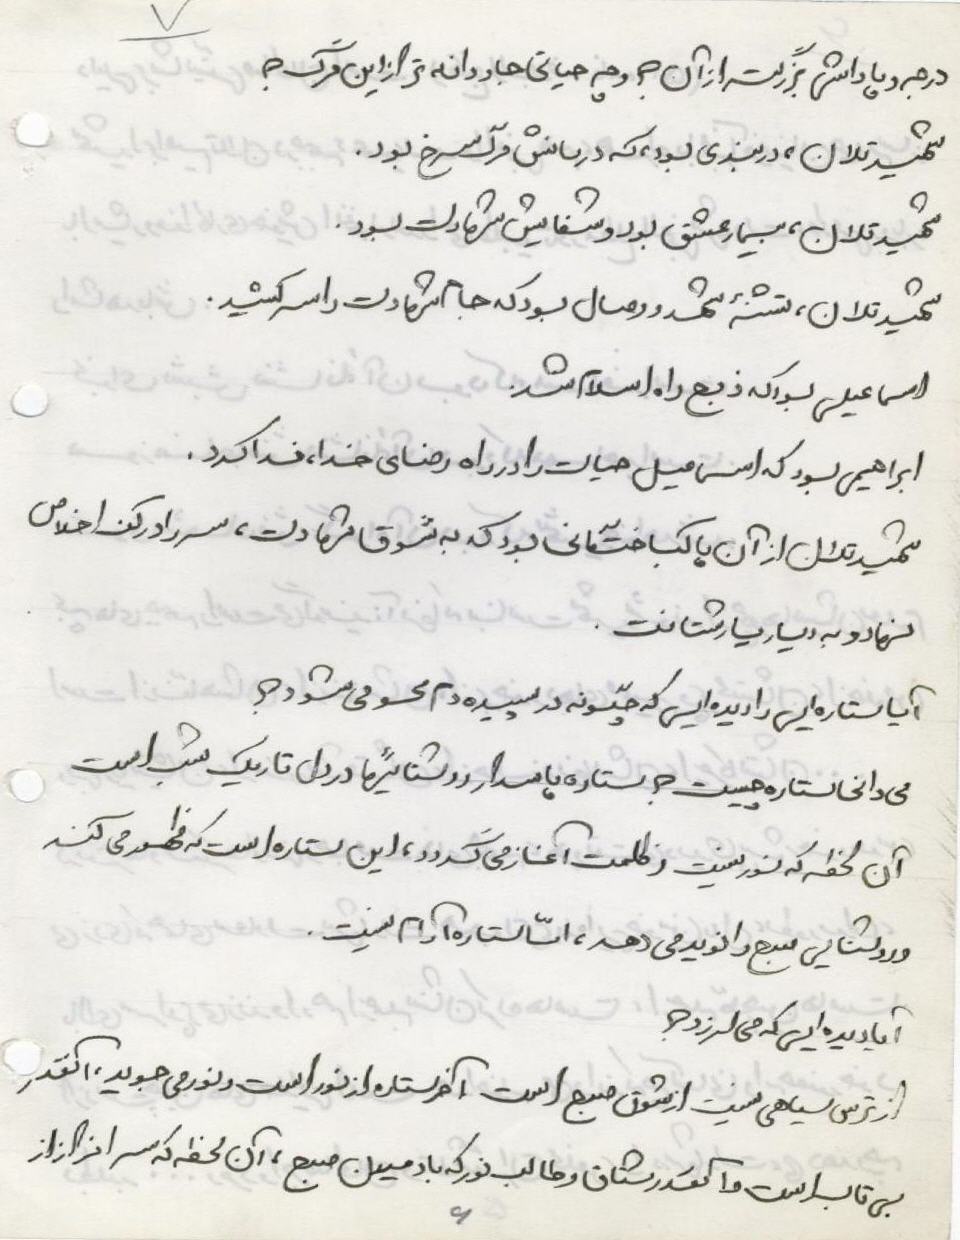 ۷
درجه و پاداشی بزرگتر از آن؟ و چه حیاتی جاودانه تر از این مرگ؟
شهید تلان، دربندی بود، که درمانش مرگ سرخ بود.
شهید تلان، بیمار عشق بود و شفایش شهادت بود.
شهید تلان، تشنهٔ شهد وصال بود که جام شهادت را سر کشید.
اسماعیلی بود که ذبیح راه اسلام شد.
ابراهیمی بود که اسماعیل حیات را در راه رضای خدا، فدا کرد.
شهید تلان از آن پاکباختگانی بود که به شوق شهادت، سر را در کف اخلاص
نهاد و به دیار یار شتافت.
آیا ستاره ایی را دیده ایی که چگونه در سپیده دم محو می شود؟
می دانی ستاره چیست؟ ستاره پاسدار روشنائیها در دل تاریک شب است
آن لحظه که نور نیست و ظلمت آغاز می گردد، این ستاره است که ظهور می کند
و روشنایی صبح را نوید می دهد، امّا ستاره آرام نیست.
آیا دیده ایی که می لرزد؟
از ترس سیاهی نیست از شوق صبح است آخر ستاره از نور است و نور می جوید، آنقدر
بی تاب است و آنقدر مشتاق و طالب نور که با دمیدن صبح، آن لحظه که سر افراز از
۶